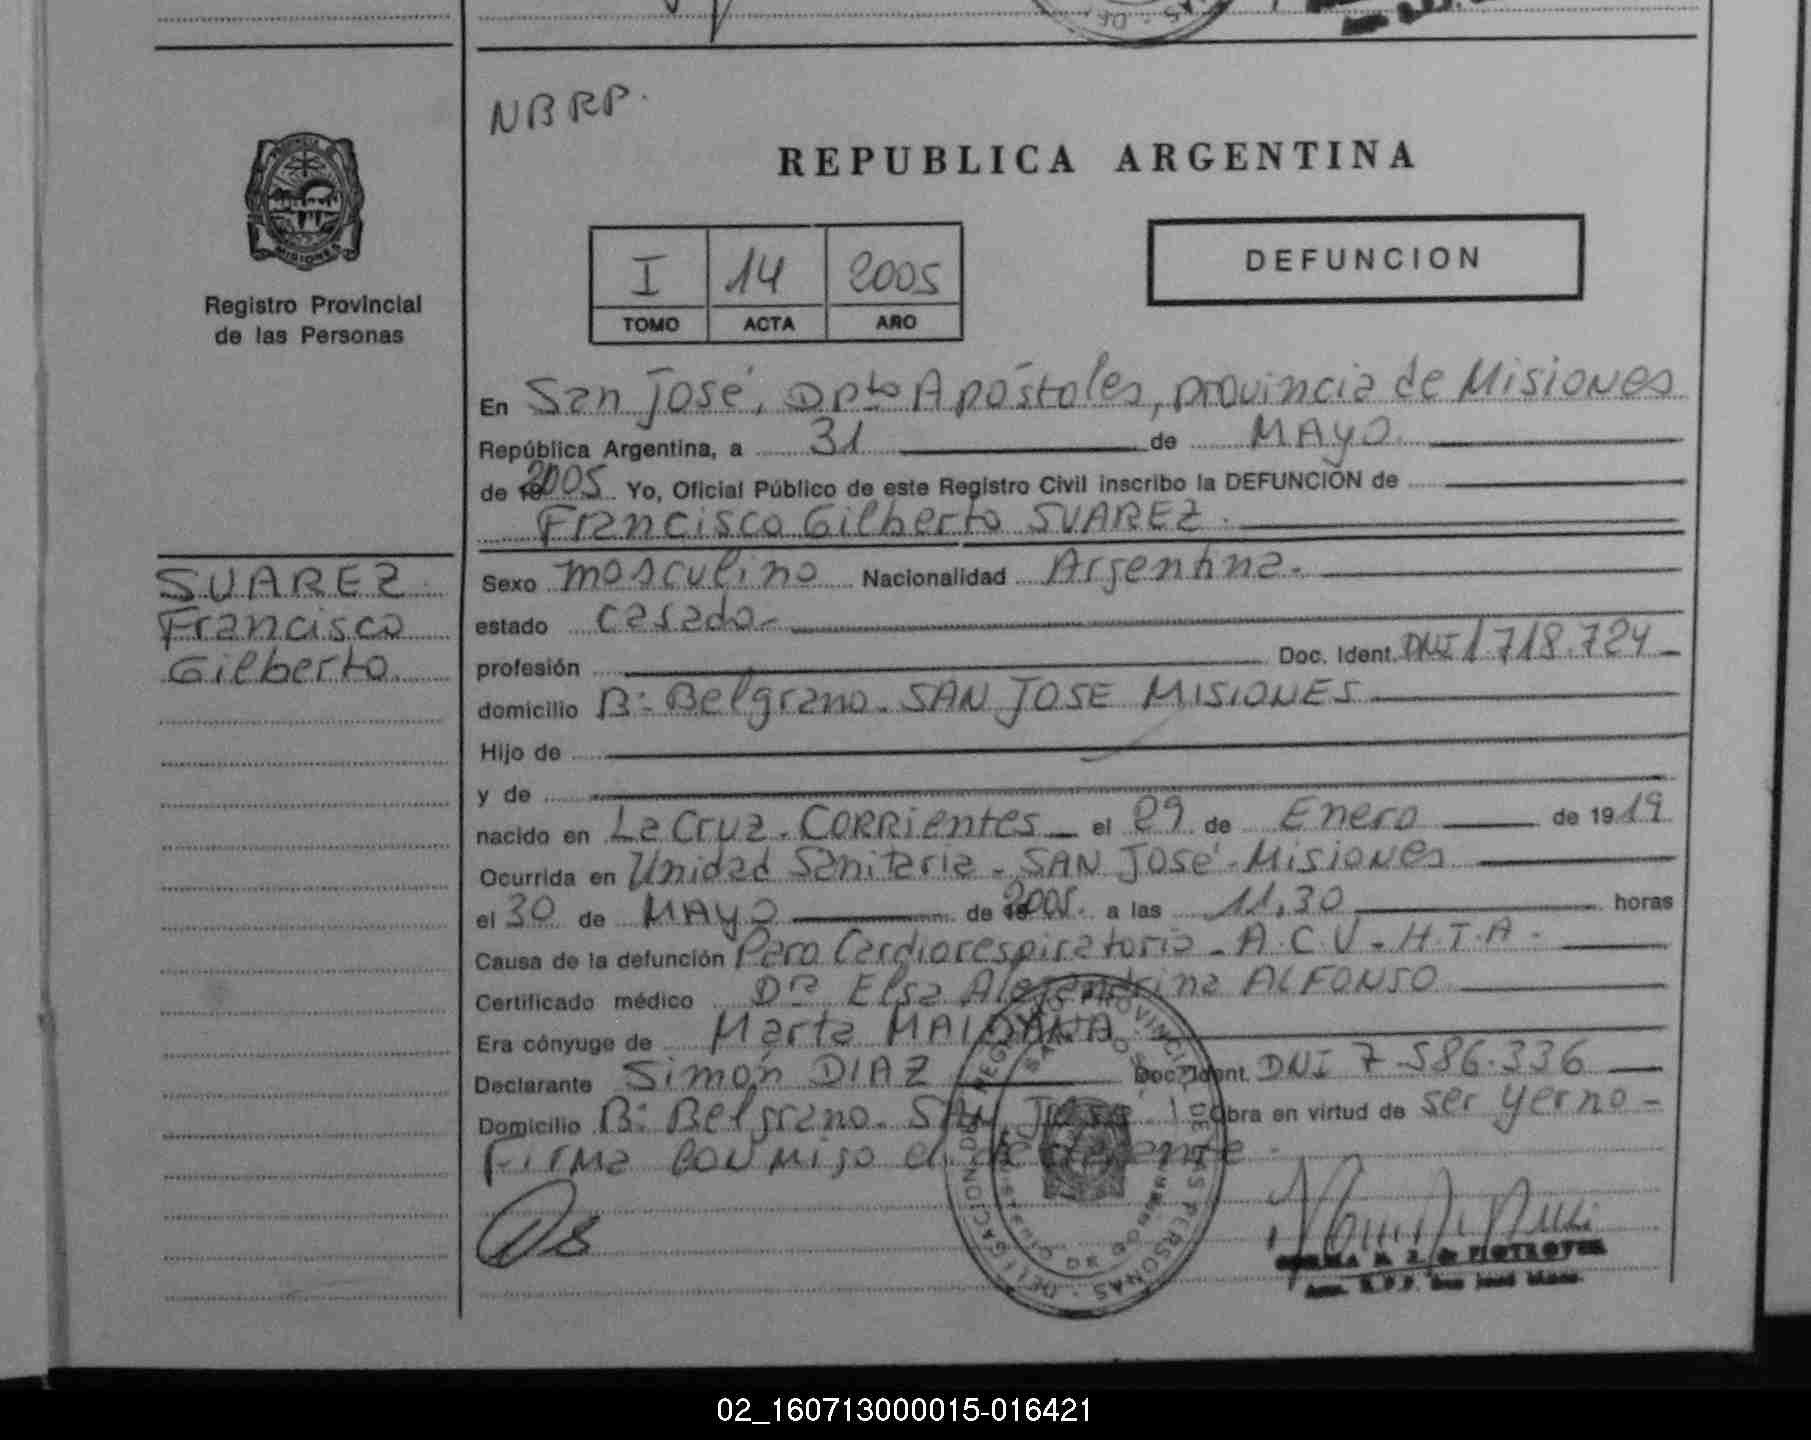 NBRP.
REPUBLICA ARGENTINA
I 14 2005
TOMO ACTA AÑO
DEFUNCION
MISIONES
Registro Provincial
de las Personas
En San José, Dpto Apóstoles, provincia de Misiones
República Argentina, a 31 de MAYO
de 2005 Yo, Oficial Público de este Registro Civil inscribo la DEFUNCIÓN de
Francisco Gilberto SUAREZ.
SUAREZ
Francisco
Gilberto
Sexo masculino Nacionalidad Argentina.
estado casado
profesión Doc. Ident. DNI 1.718.724
domicilio B: Belgrano. SAN JOSE MISIONES
Hijo de
y de
nacido en La Cruz. CORRientes el 09 de Enero de 1919
Ocurrida en Unidad Sanitaria - SAN José - Misiones
el 30 de MAYO de 2005. a las 11,30 horas
Causa de la defunción Paro Cardiorespiratorio - A.C.V - H.T.A -
Certificado médico Dra Elsa Alejandrina ALFONSO
Era cónyuge de Marta MAIDANA
Declarante Simón DIAZ Doc. Ident. DNI 7.586.336
Domicilio B: Belgrano. SAN José Obra en virtud de ser yerno -
Firma conmigo el
02_160713000015-016421